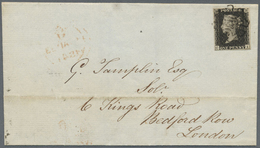 G. Tamplin Esq
Solr.
6 Kings Road
Bedford Row
London
ONE PENNY